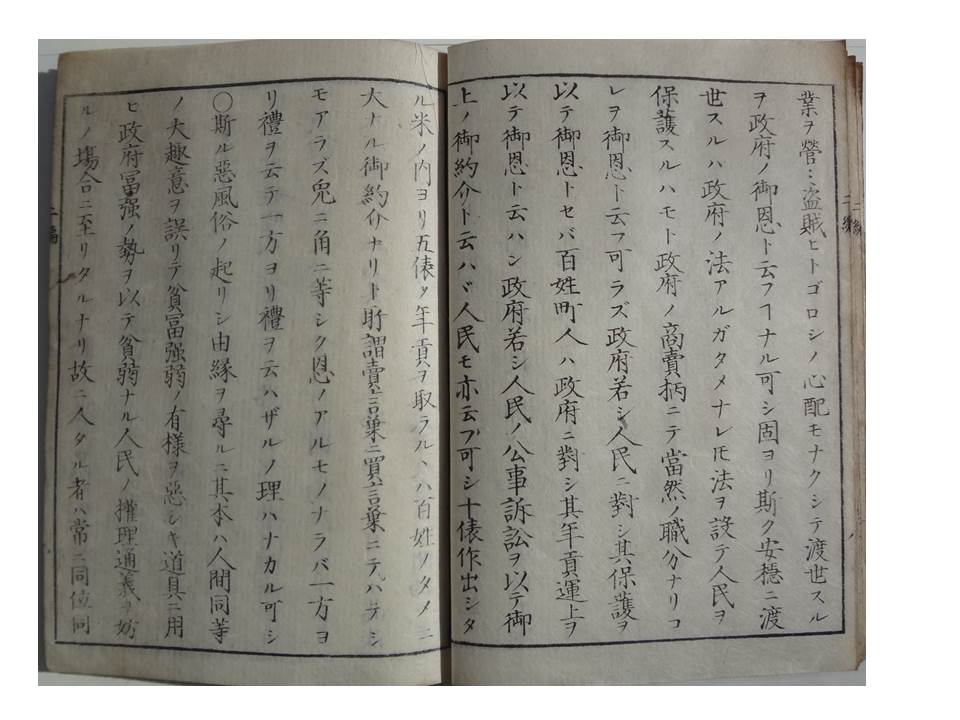 業ヲ營ミ盗賊ヒトゴロシノ心配モナクシテ渡世スル
ヲ政府ノ御恩ト云フヿナル可シ固ヨリ斯ク安穏ニ渡
世スルハ政府ノ法アルガタメナレ𪜈法ヲ設テ人民ヲ
保護スルハモト政府ノ商賣柄ニテ當然ノ職分ナリコ
レヲ御恩ト云フ可ラズ政府若シ人民ニ對シ其保護ヲ
以テ御恩トセバ百姓町人ハ政府ニ對シ其年貢運上ヲ
以テ御恩ト云ハン政府若シ人民ノ公事訴訟ヲ以テ御
上ノ御約介ト云ハヾ人民モ亦云フ可シ十俵作出シタ
ル米ノ内ヨリ五俵ノ年貢ヲ取ラルヽハ百姓ノタメニ
大ナル御約介ナリト所謂賣言葉ニ買言葉ニテハテシ
モアラズ兎ニ角ニ等シク恩ノアルモノナラバ一方ヨ
リ禮ヲ云テ一方ヨリ禮ヲ云ハザルノ理ハナカル可シ
〇斯ル惡風俗ノ起リシ由縁ヲ尋ルニ其本ハ人間同等
ノ大趣意ヲ誤リテ貧冨强弱ノ有様ヲ惡シキ道具ニ用
ヒ政府冨强ノ勢ヲ以テ貧弱ナル人民ノ權理通義ヲ妨
ルノ塲合ニ至リタルナリ故ニ人タル者ハ常ニ同位同
二編